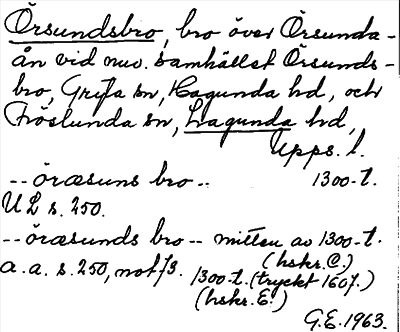 Örsundsbro, bro över Örsunda-
ån vid nuv. samhället Örsunds-
bro, Gryta sn, Hagunda hd, och
Fröslunda sn, Lagunda hd,
Upps. l.
-- öræsuns bro -- 1300-t.
UL s. 250.
-- öræsunds bro -- mitten av 1300-t.
(hskr. C.)
a.a. s. 250, not 73. 1300-t. (tryckt 1607.)
(hskr. E.)
G.E. 1963.